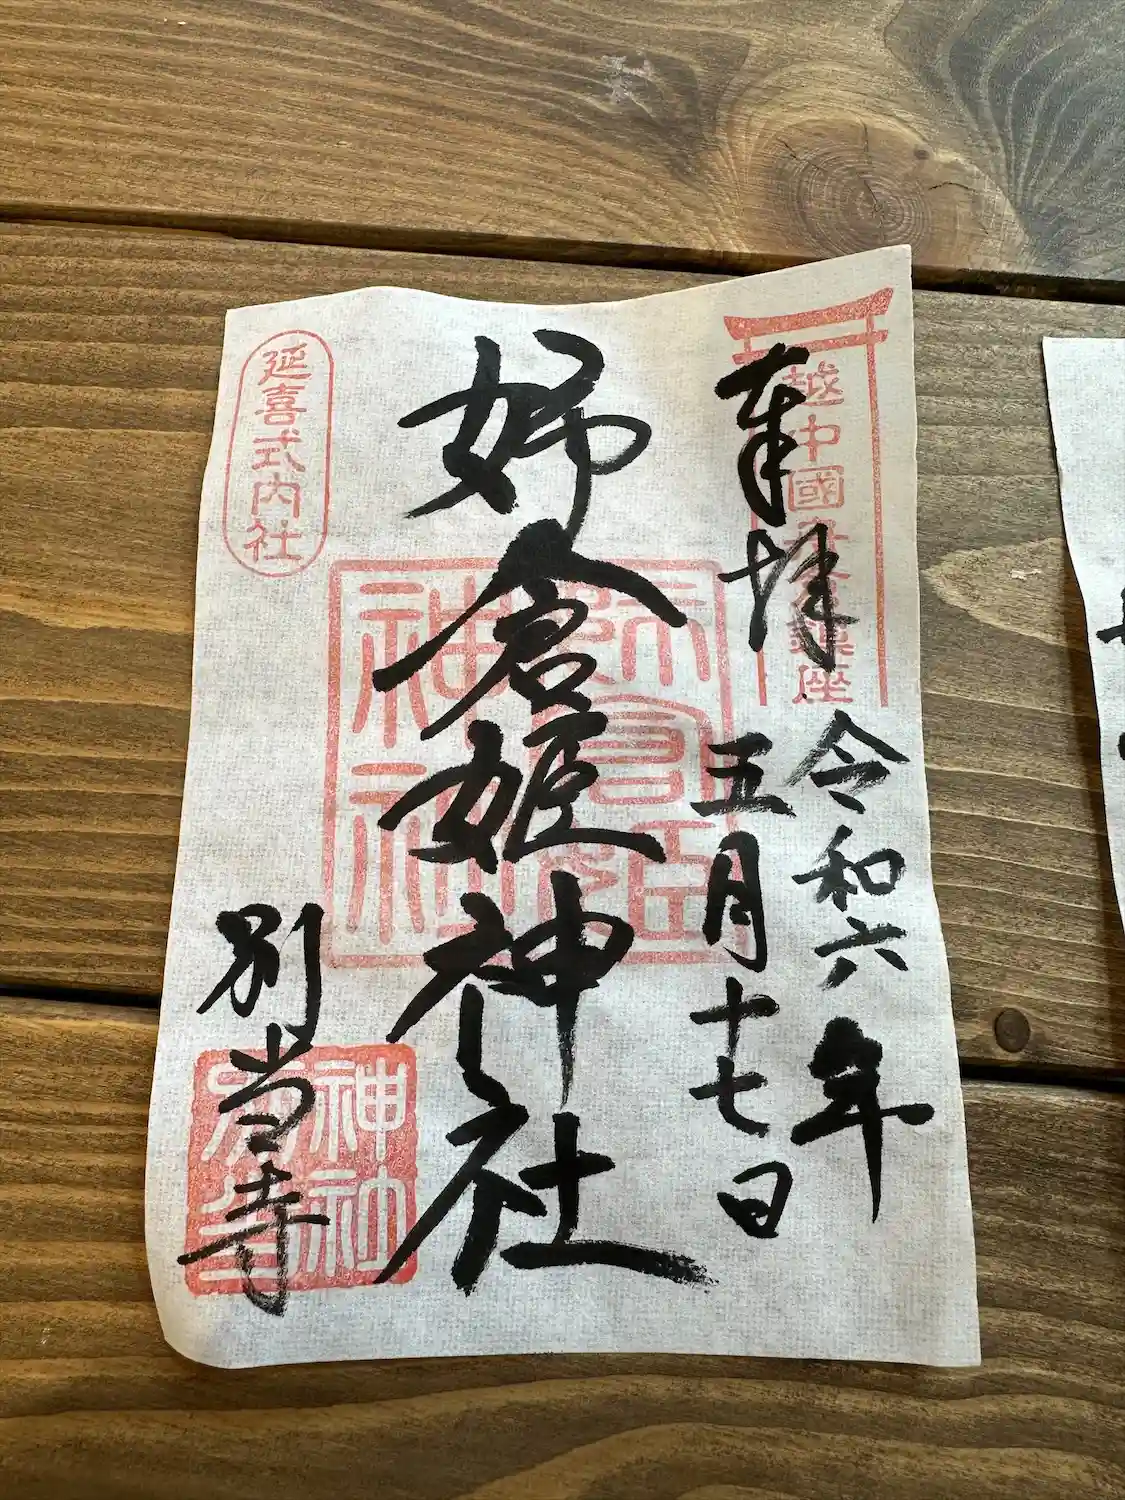 奉拝
越中國
鎮座
令和六年
五月十七日
姉倉姫神社
延喜式内社
別当寺
神社